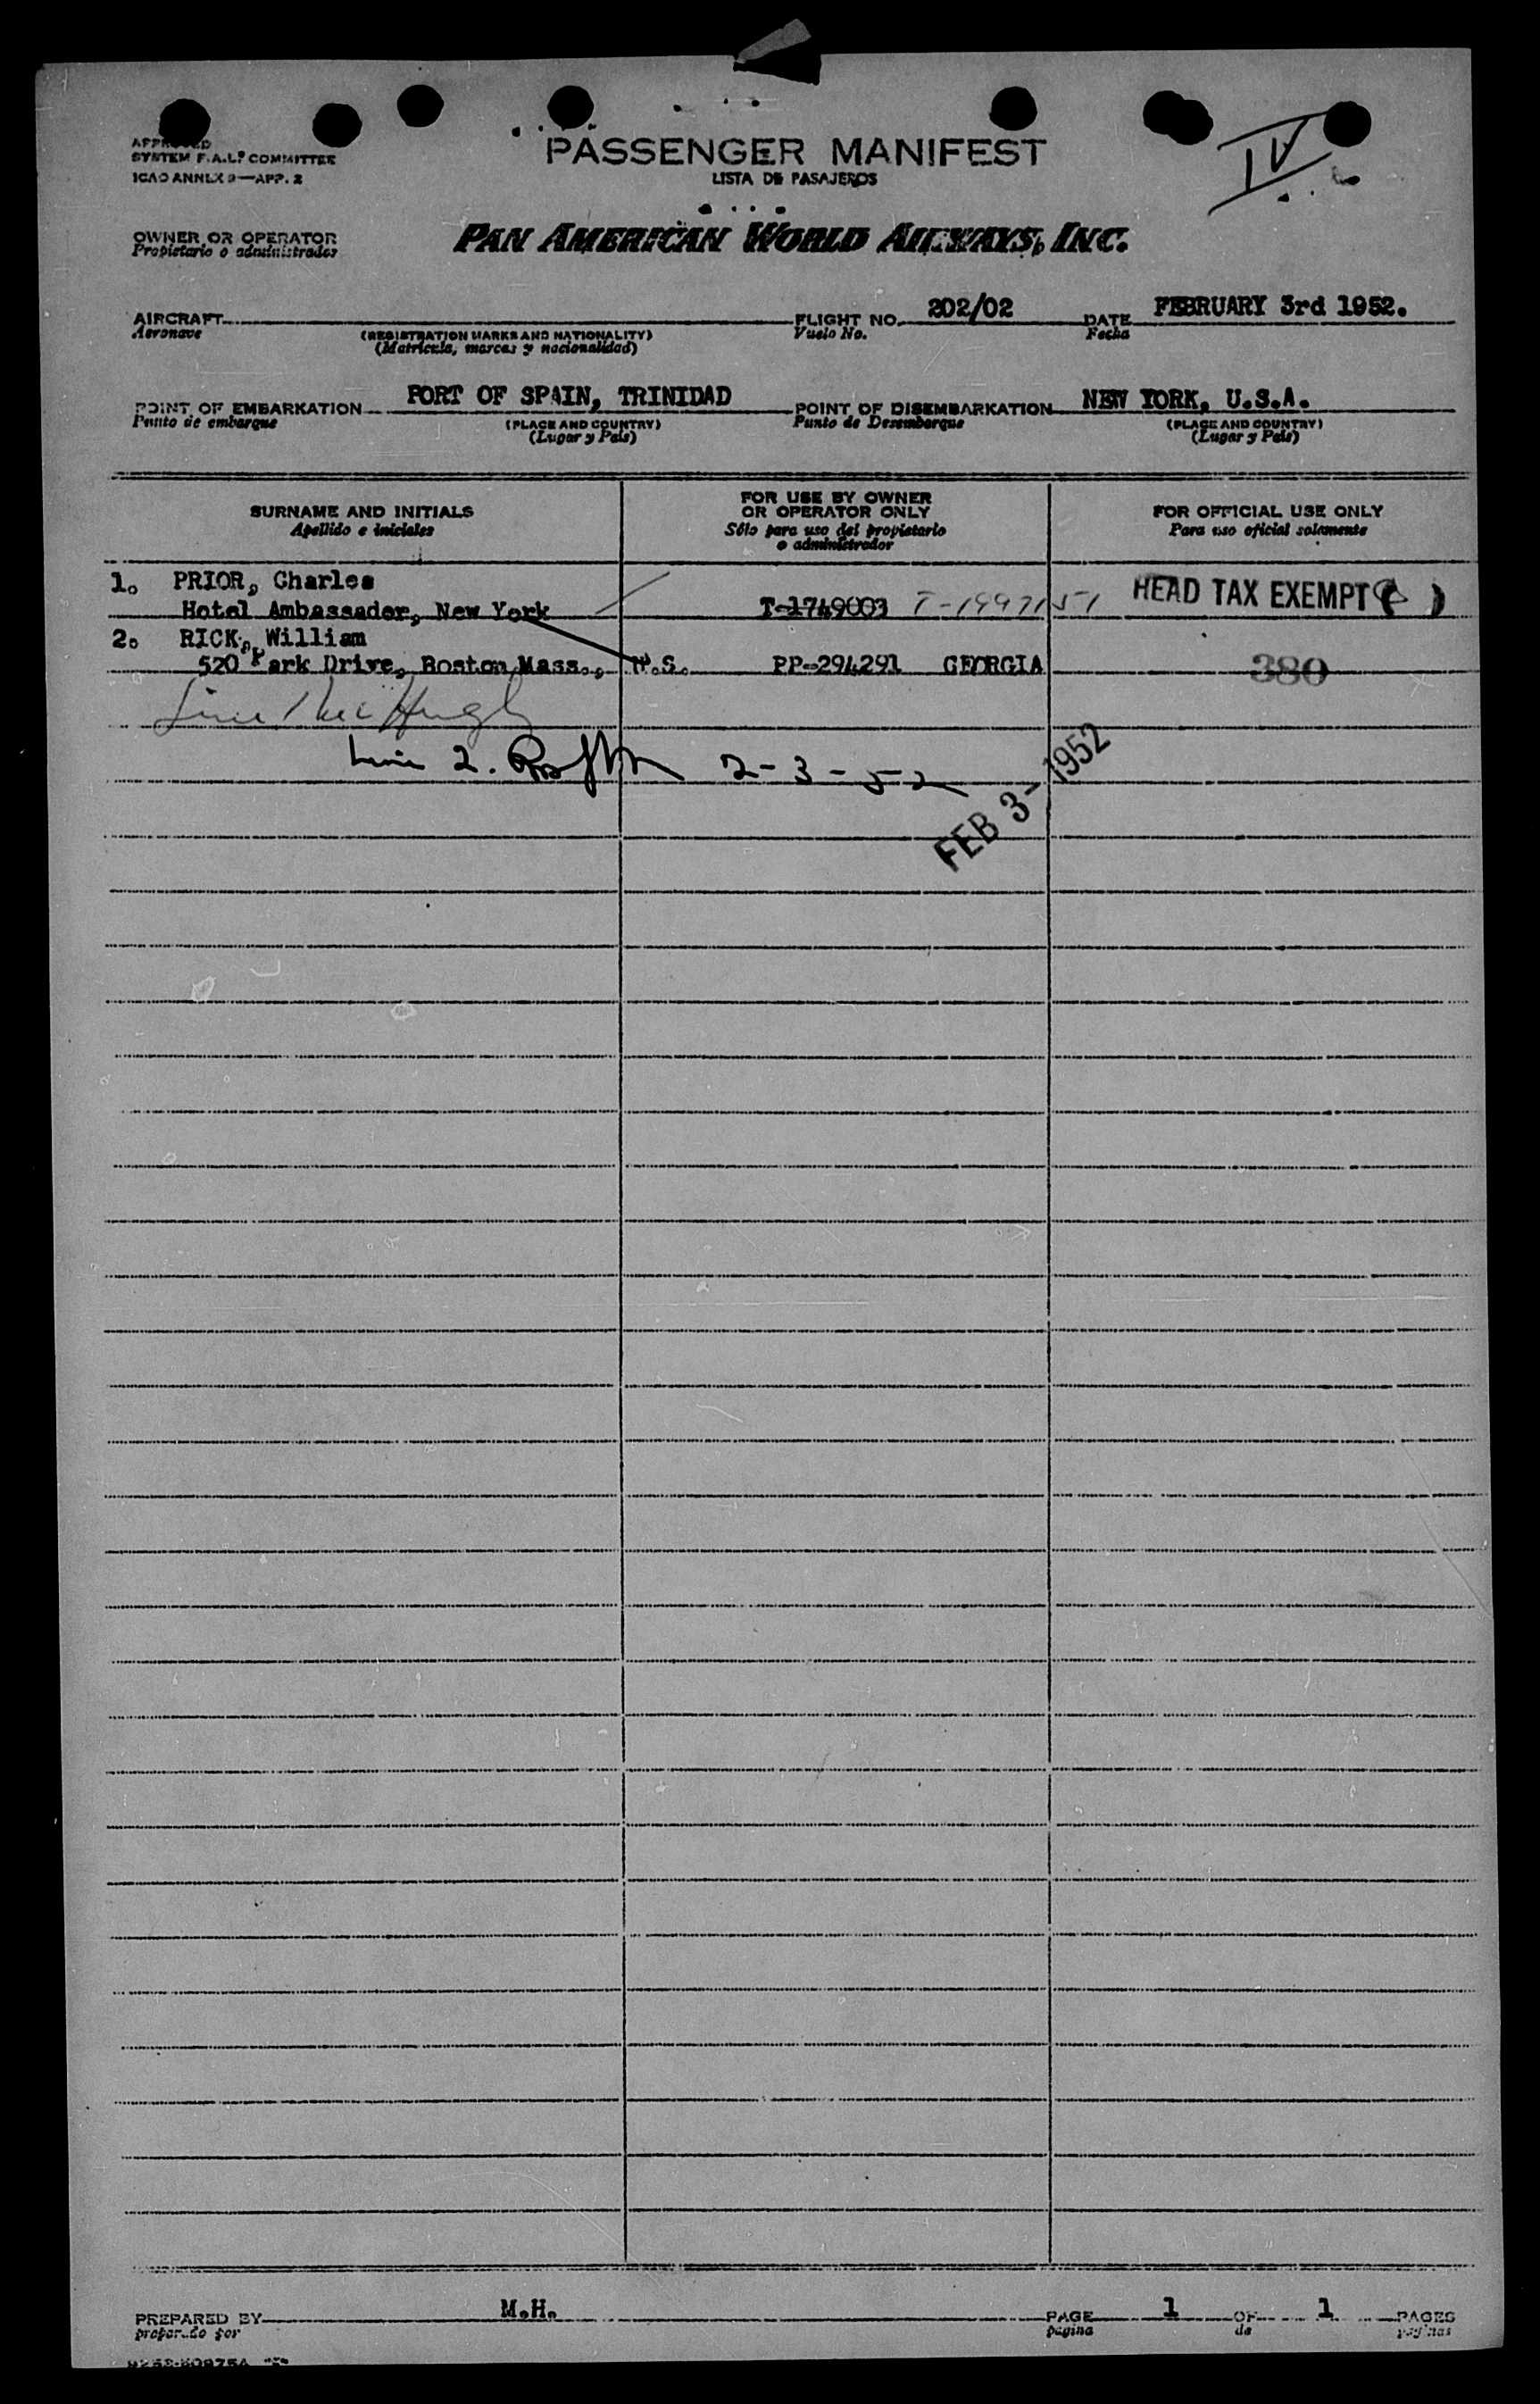 SYSTEM F.A.L. COMMITTEE
ICAO ANNEX 9—APP. 2
PASSENGER MANIFEST
LISTA DE PASAJEROS
IV
OWNER OR OPERATOR
Propietario o administrador
PAN AMERICAN WORLD AIRWAYS, INC.
AIRCRAFT
Aeronave
(REGISTRATION MARKS AND NATIONALITY)
(Matrícula, marcas y nacionalidad)
FLIGHT NO. 202/02
Vuelo No.
DATE FEBRUARY 3rd 1952.
Fecha
POINT OF EMBARKATION PORT OF SPAIN, TRINIDAD
Punto de embarque
(PLACE AND COUNTRY)
(Lugar y País)
POINT OF DISEMBARKATION NEW YORK, U.S.A.
Punto de Desembarque
(PLACE AND COUNTRY)
(Lugar y País)
SURNAME AND INITIALS
Apellido e iniciales
FOR USE BY OWNER
OR OPERATOR ONLY
Sólo para uso del propietario
o administrador
FOR OFFICIAL USE ONLY
Para uso oficial solamente
1. PRIOR, Charles
Hotel Ambassador, New York T-1749003 T-1997151 HEAD TAX EXEMPT ( )
2. RICK, William
520 Park Drive, Boston Mass., U.S. PP-294291 GEORGIA 380
2-3-52
FEB 3- 1952
PREPARED BY M.H.
preparado por
PAGE 1 OF 1 PAGES
página de páginas